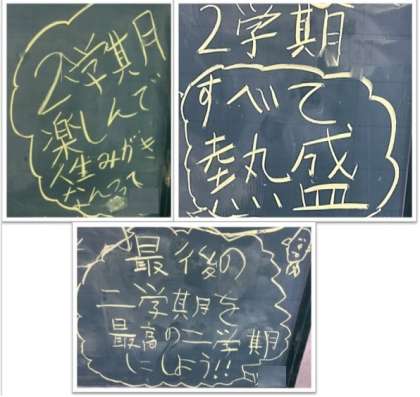 2学期
楽しんで
人生みがき
なんつって
2学期
すべて
熱盛
最後の
二学期を
最高の二学期
にしよう!!